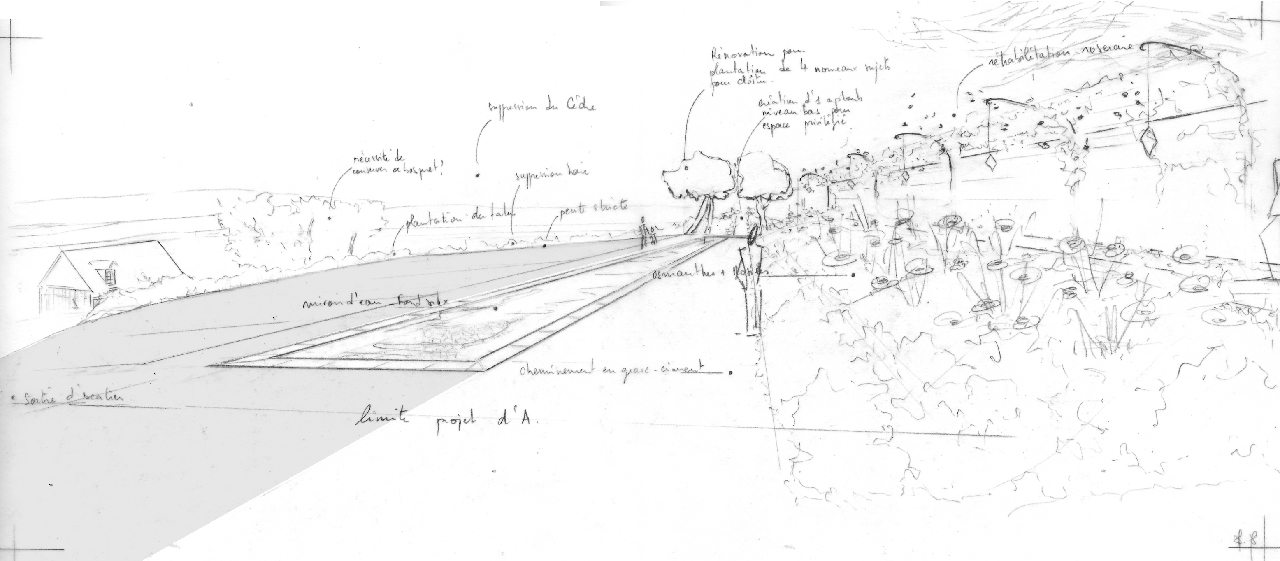 Rénovation pour
plantation de 4 nouveaux sujets
réhabilitation roseraie
suppression du Cèdre
création d'1
niveau bas pour
espace privilégié
nécessité de
conserver ce bosquet?
suppression haie
plantation du talus
pente stricte
osmanthes +
miroir d'eau
cheminement en grave-ciment
Sortie d'escalier
limite projet d'A.